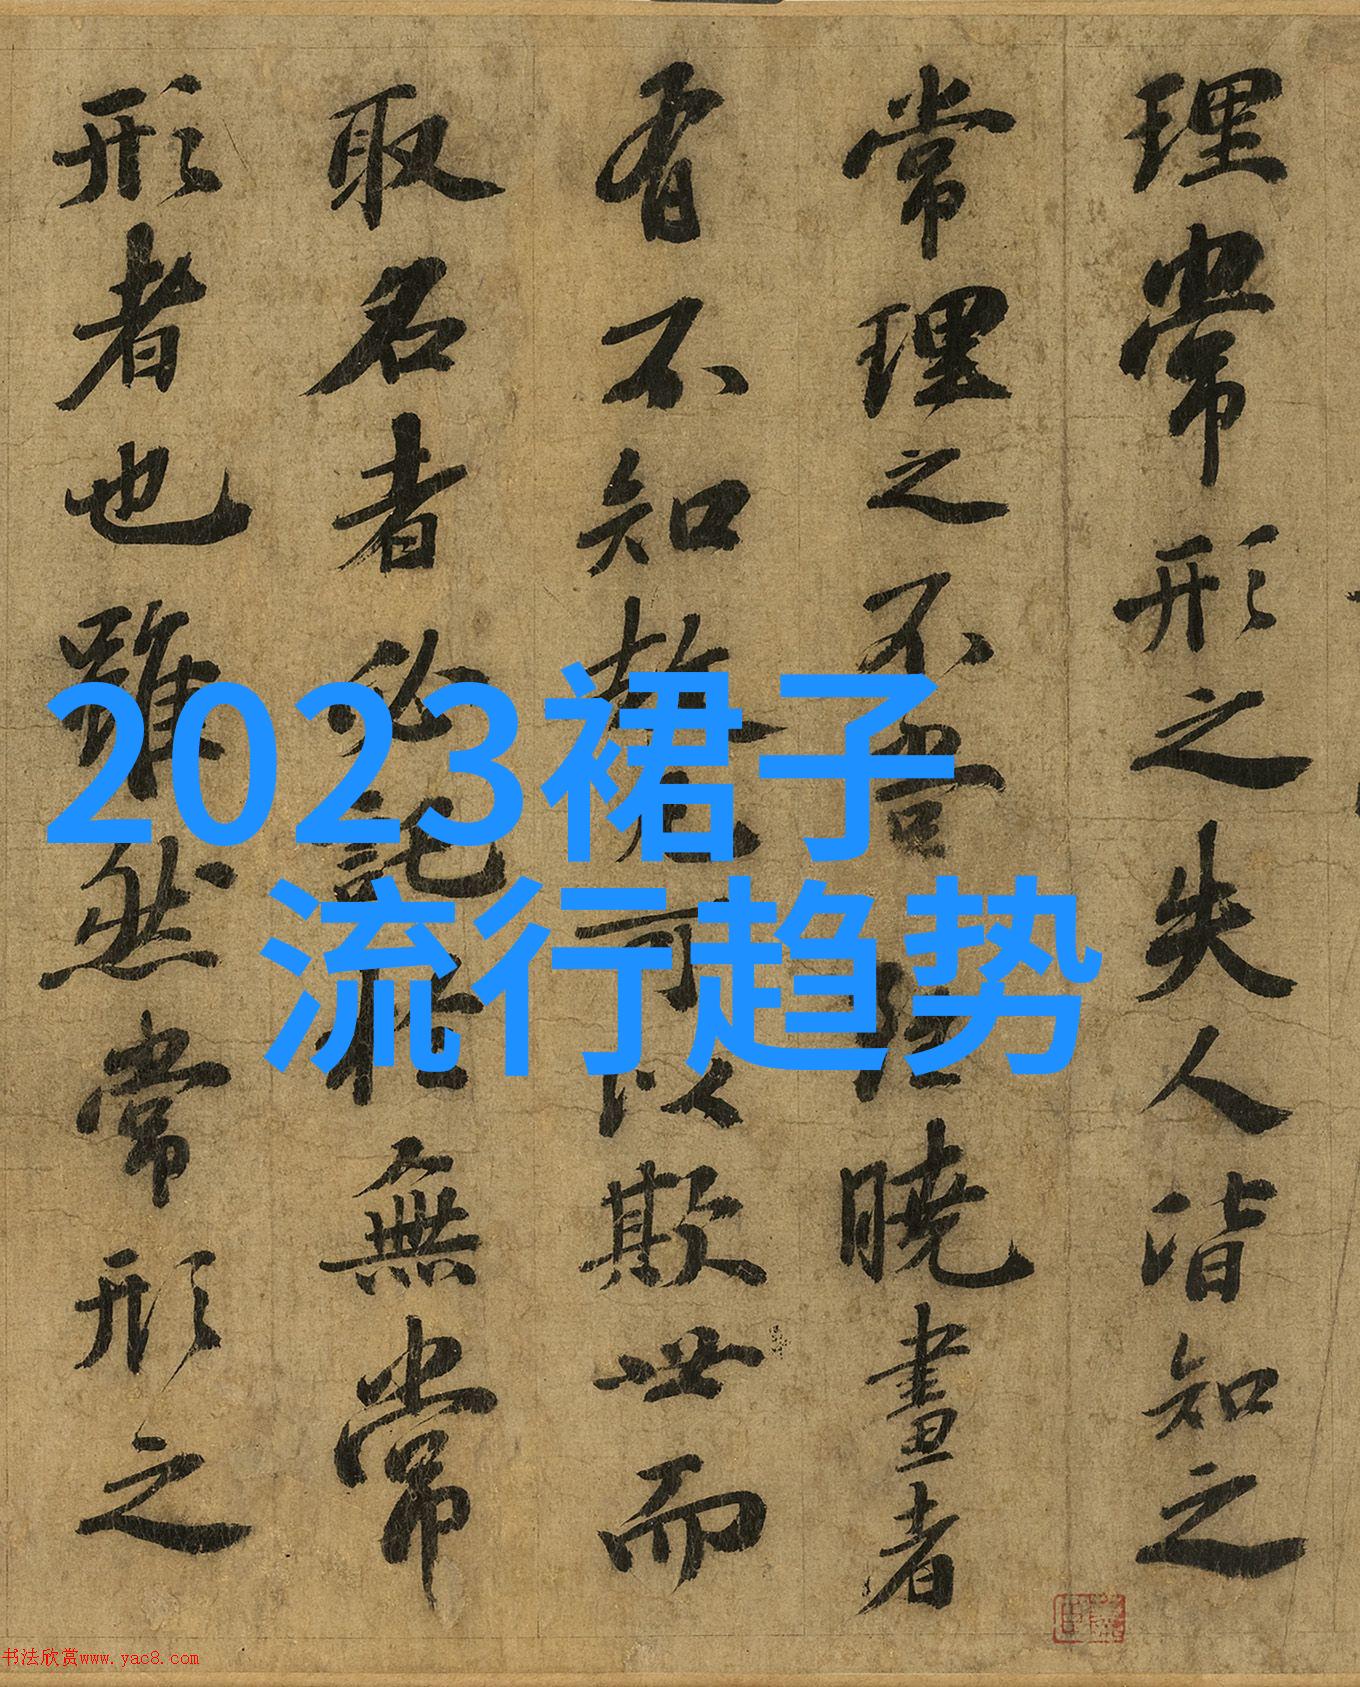 理常形之失人皆知之
常理之不當雖曉畫者
有不知故凡可以欺世而
取名者必託於無常
形者也雖然常形之
2023裙子
流行趋势
书法欣赏www.yac8.com